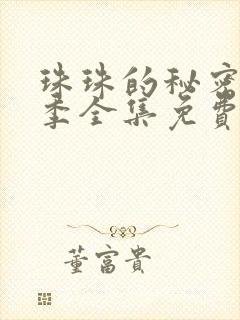 珠珠的秘密
季全集免费
董富贵